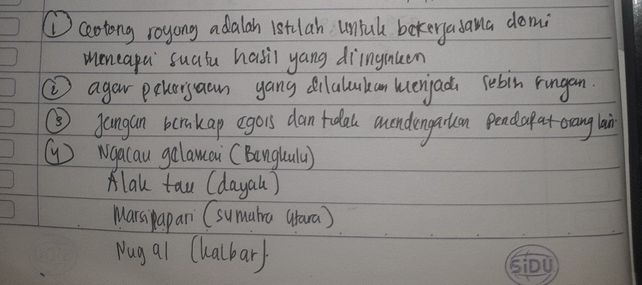 ① Gotong royong adalah istilah untuk bekerjasama demi
mencapai suatu hasil yang diinginkan
② agar pekerjaan yang dilakukan menjadi lebih ringan.
③ jangan bersikap egois dan tidak mendengarkan pendapat orang lain
④ Ngacau gelamai (Bengkulu)
Alak tau (dayak)
Marsipapari (sumatra utara)
Nugal (kalbar).
SiDU